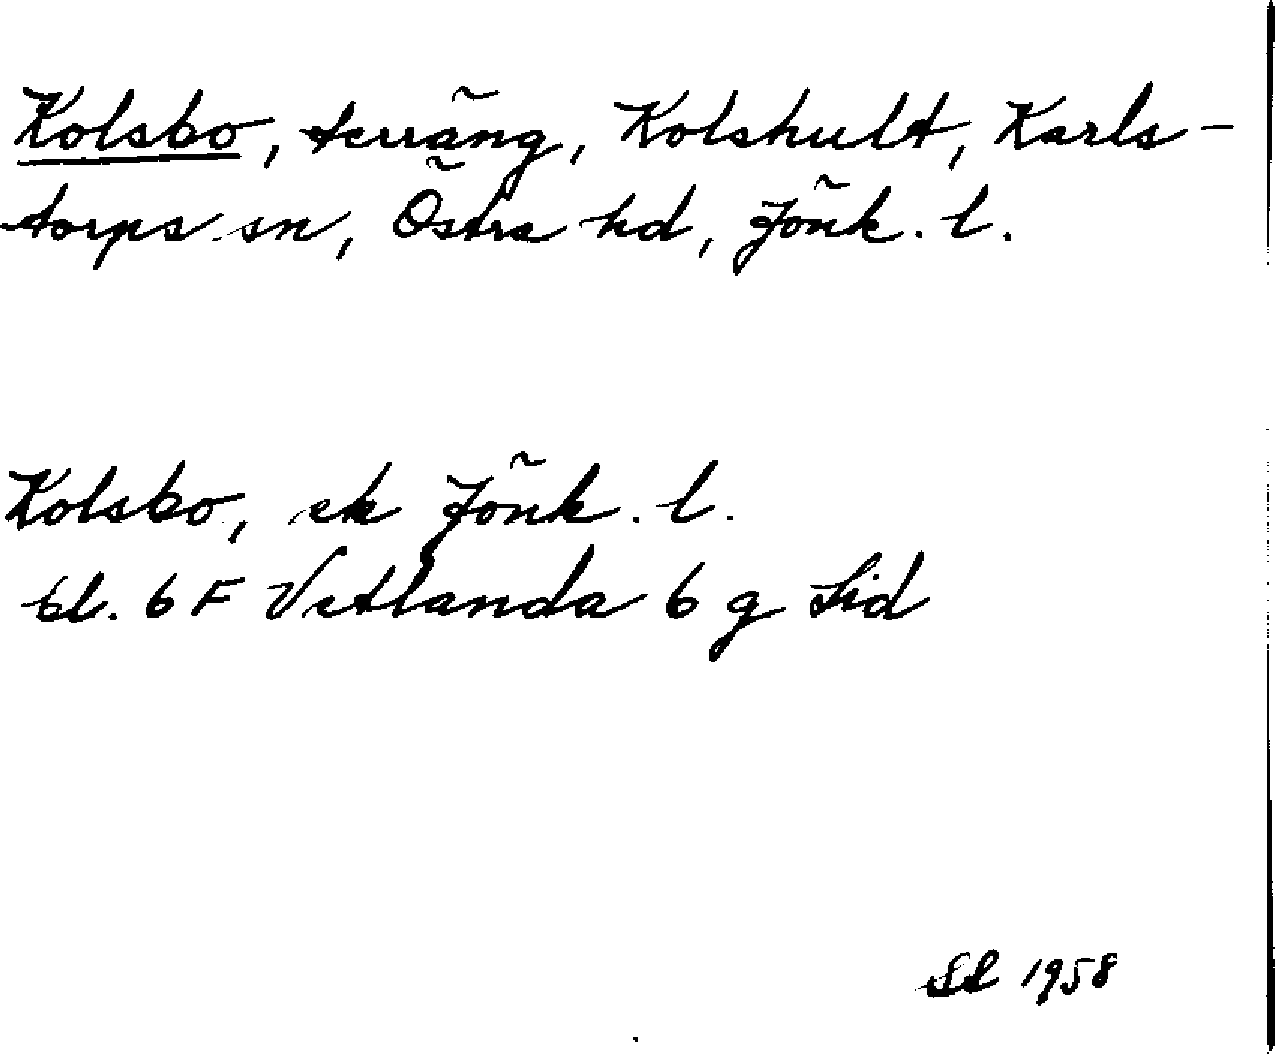 Kolsbo, terräng, Kolshult, Karls-
torps sn, Östra hd, Jönk. l.
Kolsbo, ek Jönk. l.
bl. 6 F Vetlanda 6 g Sid
1958